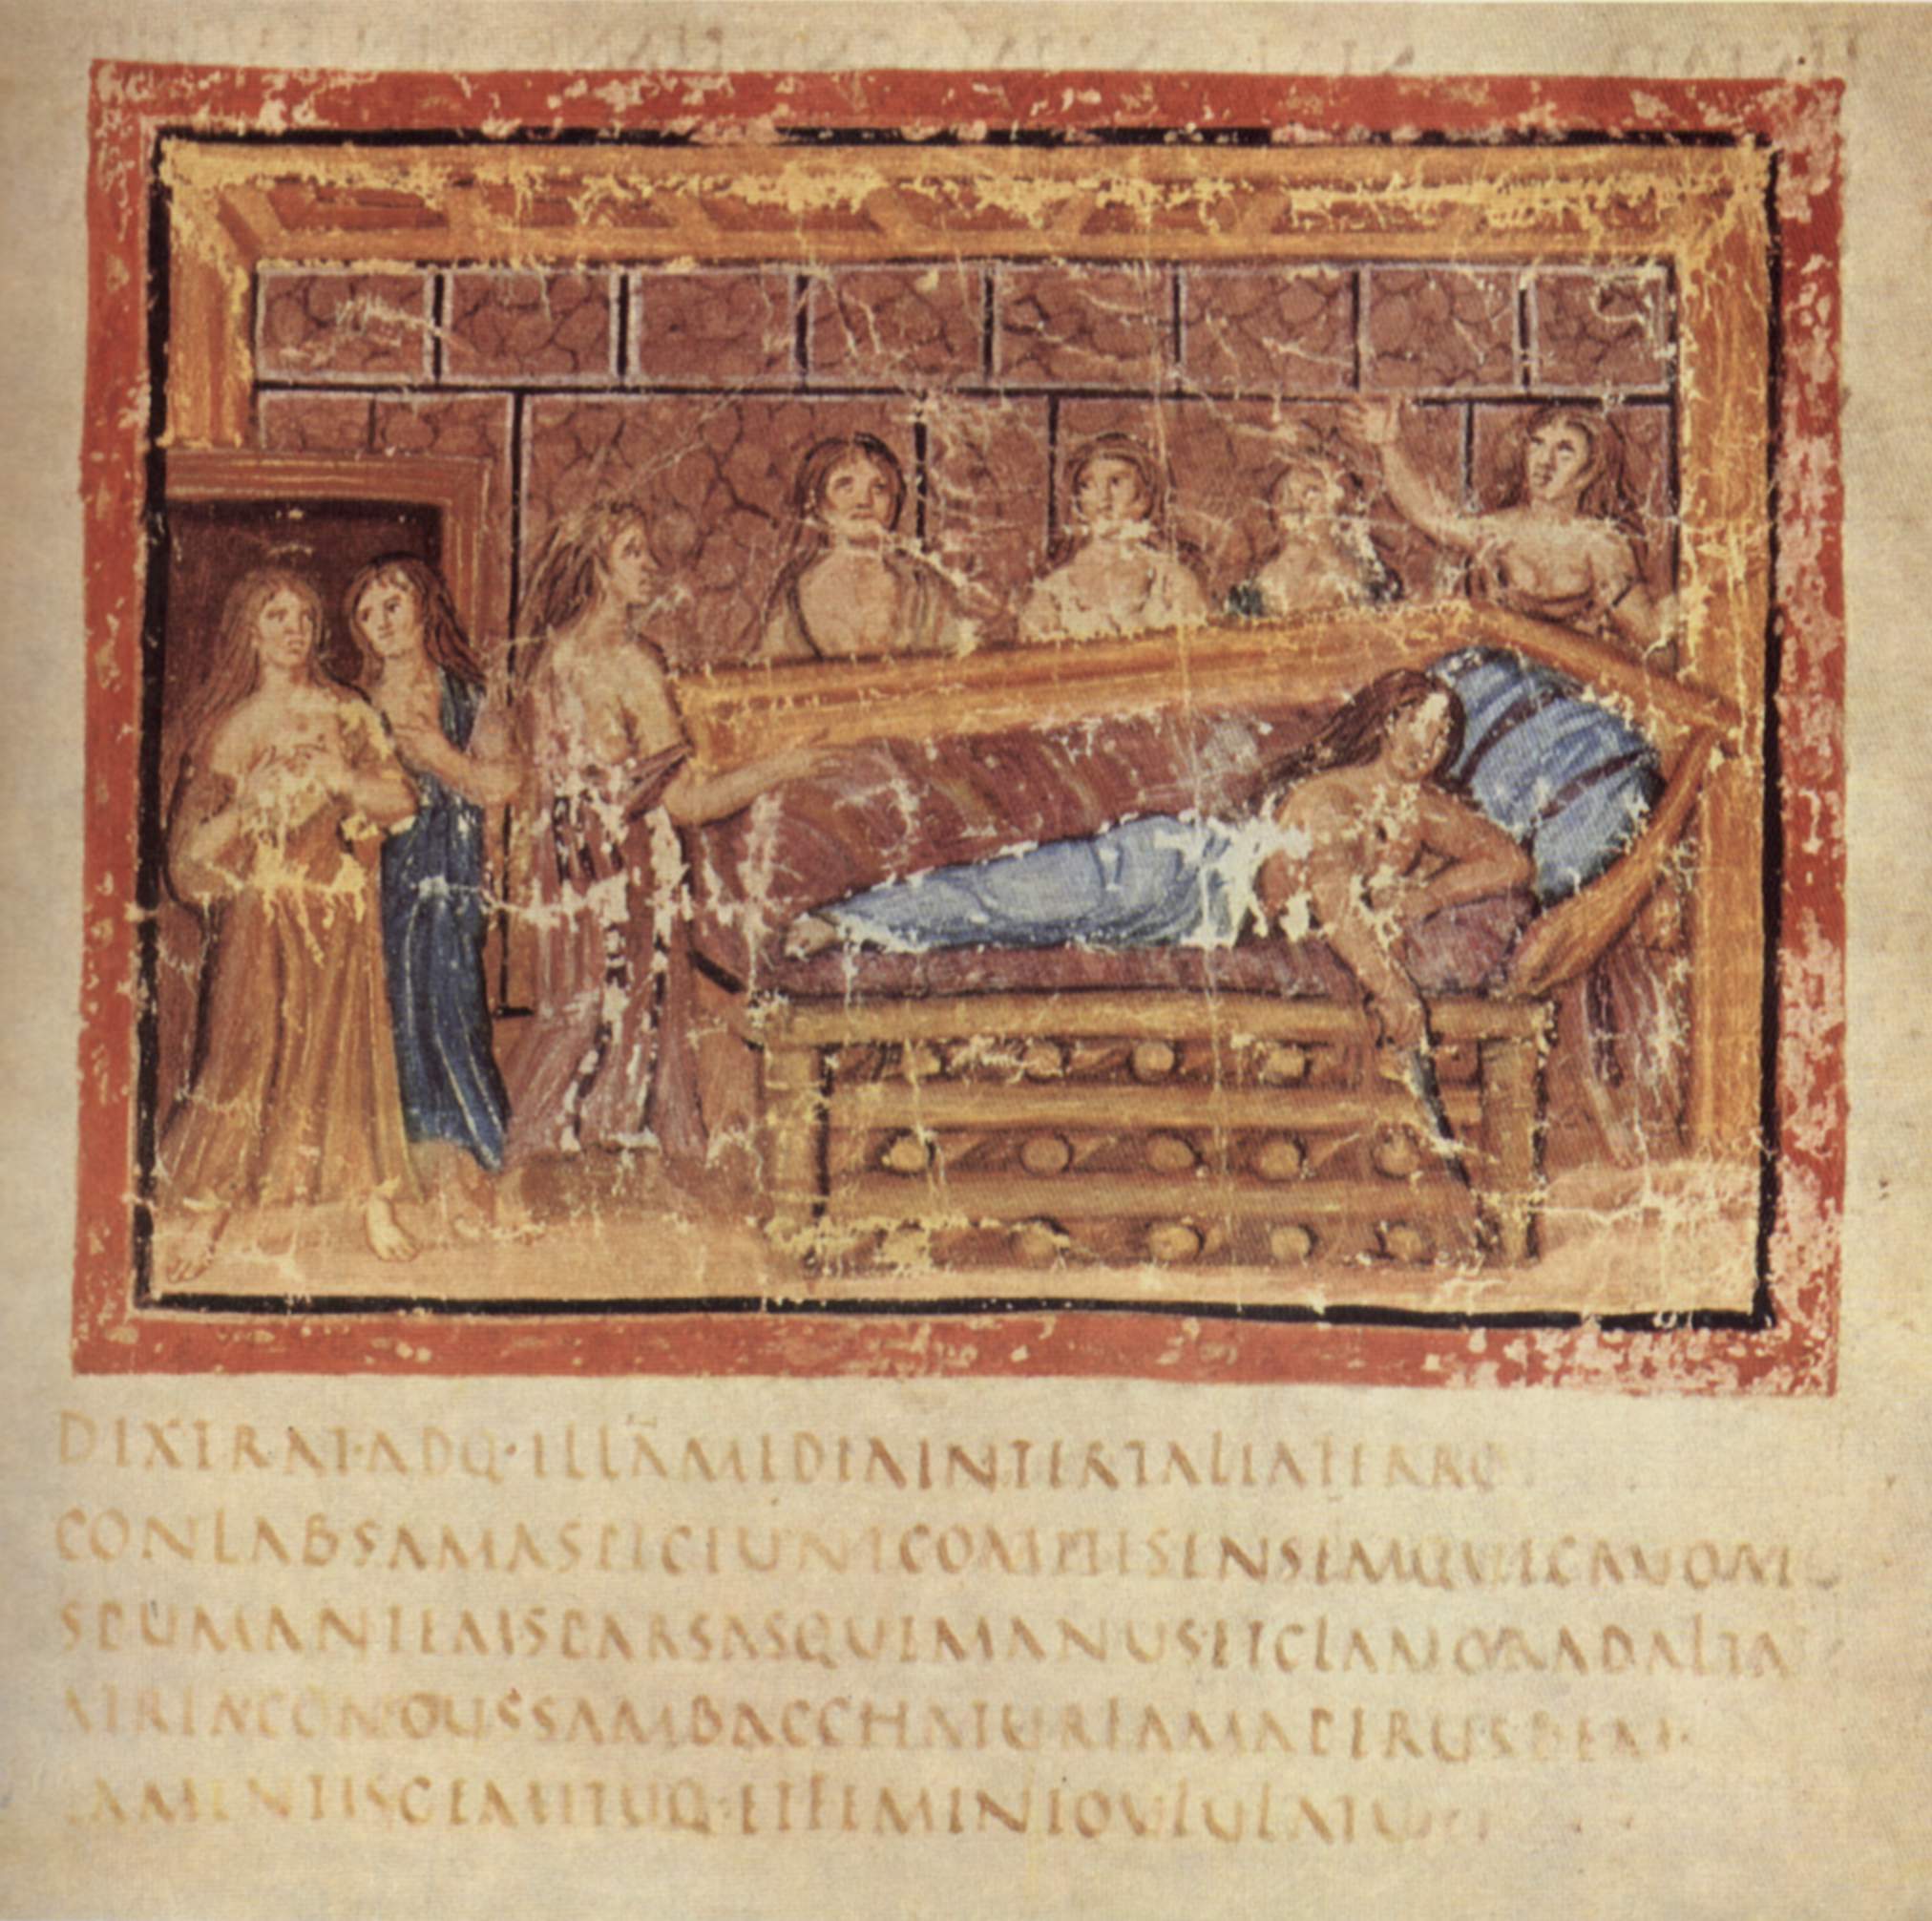 DIXERAT·ADQ·ILLAMMEDIAINTERTALIAFERRO
CONLABSAMASPICIUNTCOMITESENSEMQUECRUORE
SPUMANTEMSPARSASQUEMANUSITCLAMORADALTA
ATRIACONCUSSAMBACCHATURFAMAPERURBEM
LAMENTISGEMITUQ·ETFEMINEOULULATU